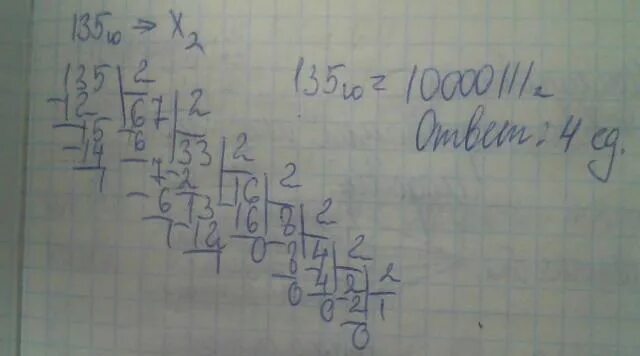 135₁₀ → X₂
135₁₀ = 10000111₂
Ответ: 4 ед.
135 | 2
-12 | 67 | 2
15 -6 | 33 | 2
-14 7 -2 | 16 | 2
1 -6 13 16 | 8 | 2
1 12 0 8 | 4 | 2
1 0 4 | 2 | 2
0 2 | 1
0